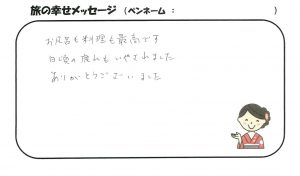 旅の幸せメッセージ （ペンネーム ： ）
お風呂も料理も最高です
日頃の疲れもいやされました
ありがとうございました